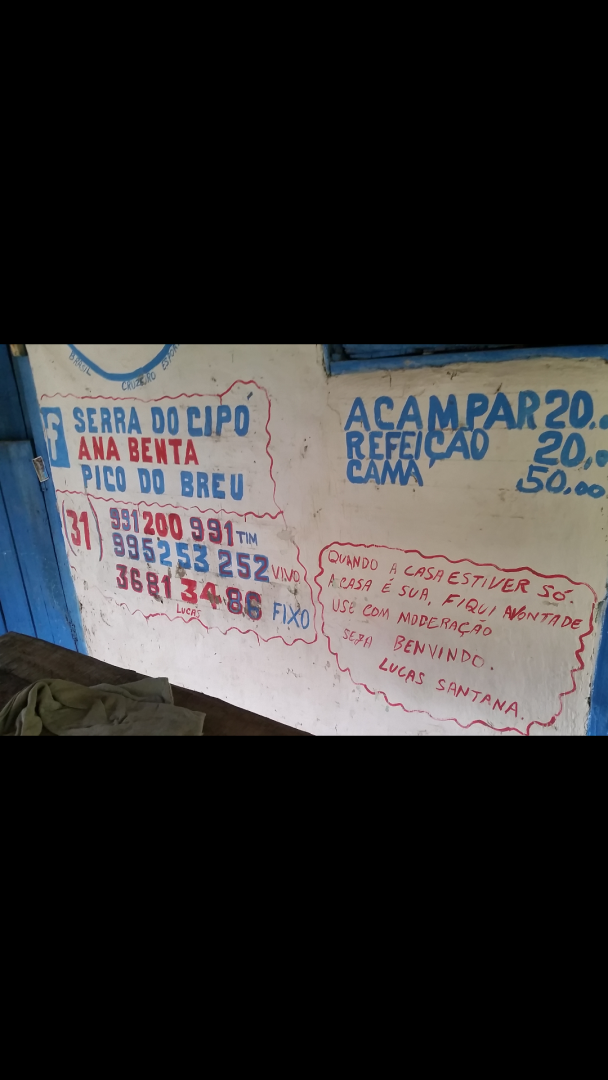 BRASIL
CRUZEIRO
f
SERRA DO CIPÓ
ANA BENTA
PICO DO BREU
(31)
991200991 TIM
995253252 VIVO
3681 3486 FIXO
LUCAS
ACAMPAR 20.
REFEIÇÃO 20,0
CAMA 50,00
QUANDO A CASA ESTIVER SÓ.
A CASA É SUA, FIQUI AVONTADE
USE COM MODERAÇÃO
SEJA BENVINDO.
LUCAS SANTANA.